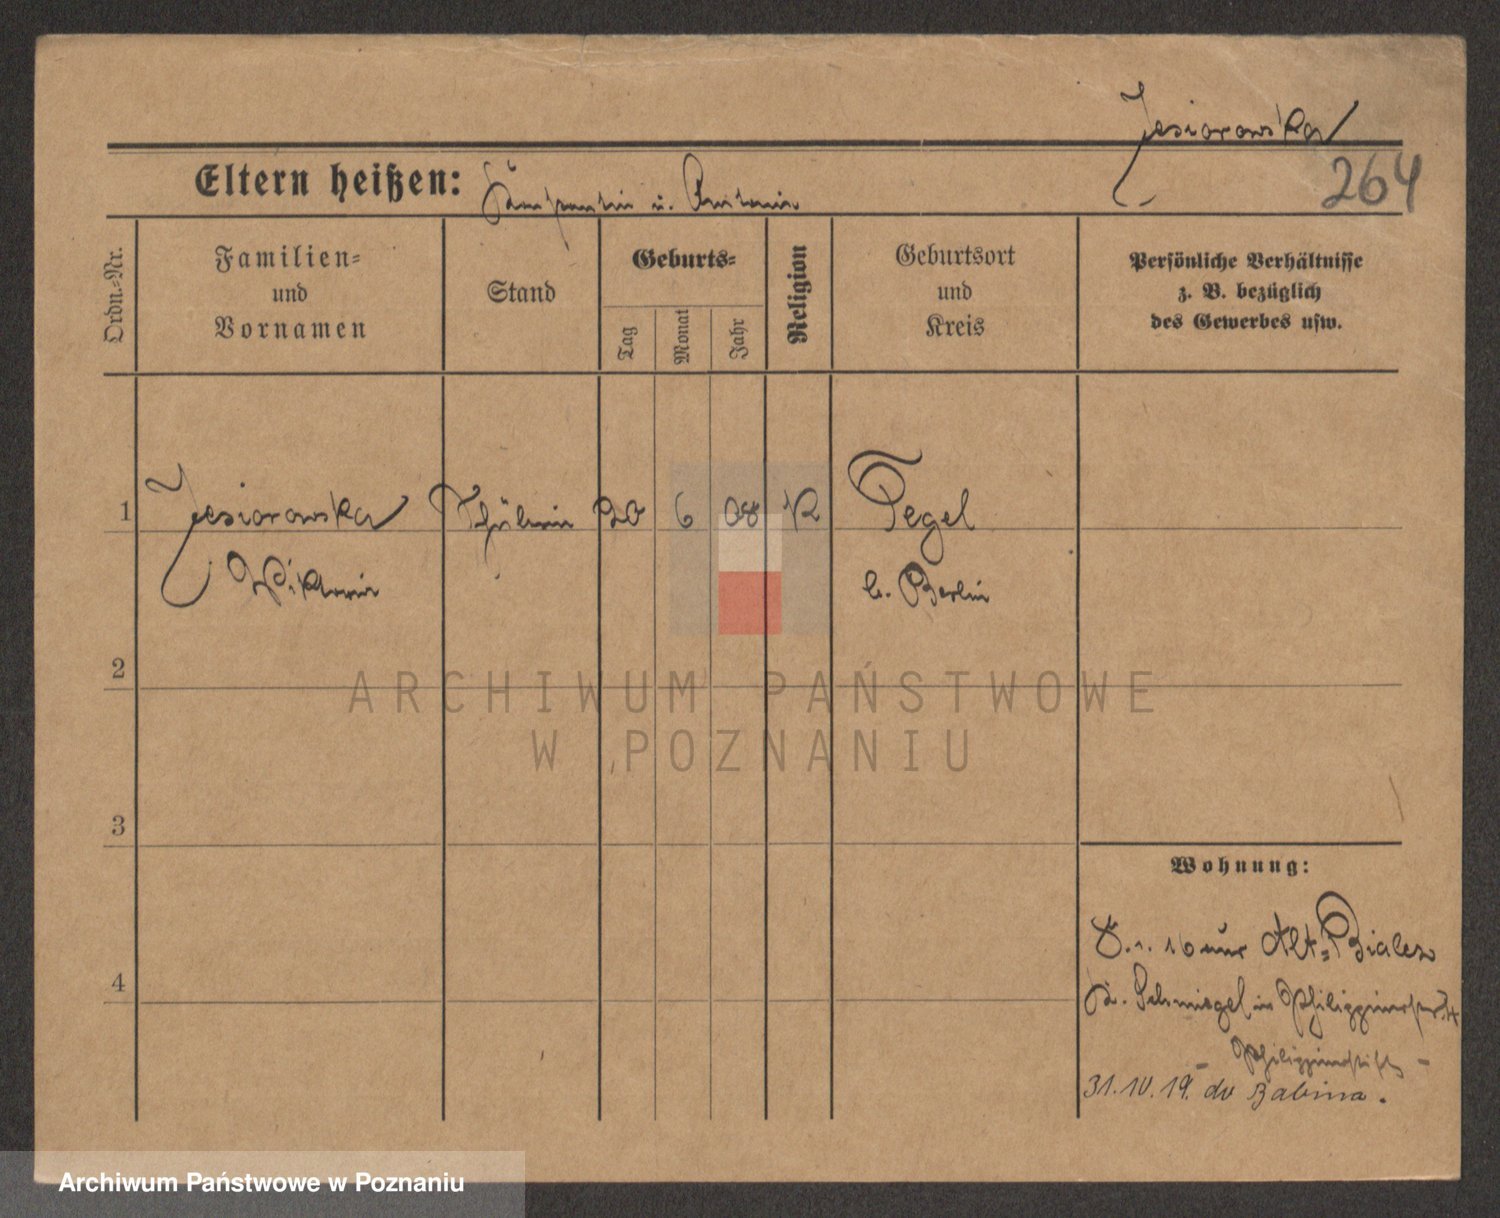 Jesiorowska
264
Eltern heißen: Konstantin u. Antonie
Ordn.-Nr.
Familien-
und
Vornamen
Stand
Geburts-
Tag
Monat
Jahr
Religion
Geburtsort
und
Kreis
Persönliche Verhältnisse
z. B. bezüglich
des Gewerbes usw.
1 Jesiorowska Schülerin 20 6 08 K Tegel
Viktoria b. Berlin
2
3
4
Wohnung:
8.1.16 nur Alt-Bialcz
Kr. Schmiegel in
31.10.19. do Babina.
ARCHIWUM PAŃSTWOWE
W POZNANIU
Archiwum Państwowe w Poznaniu